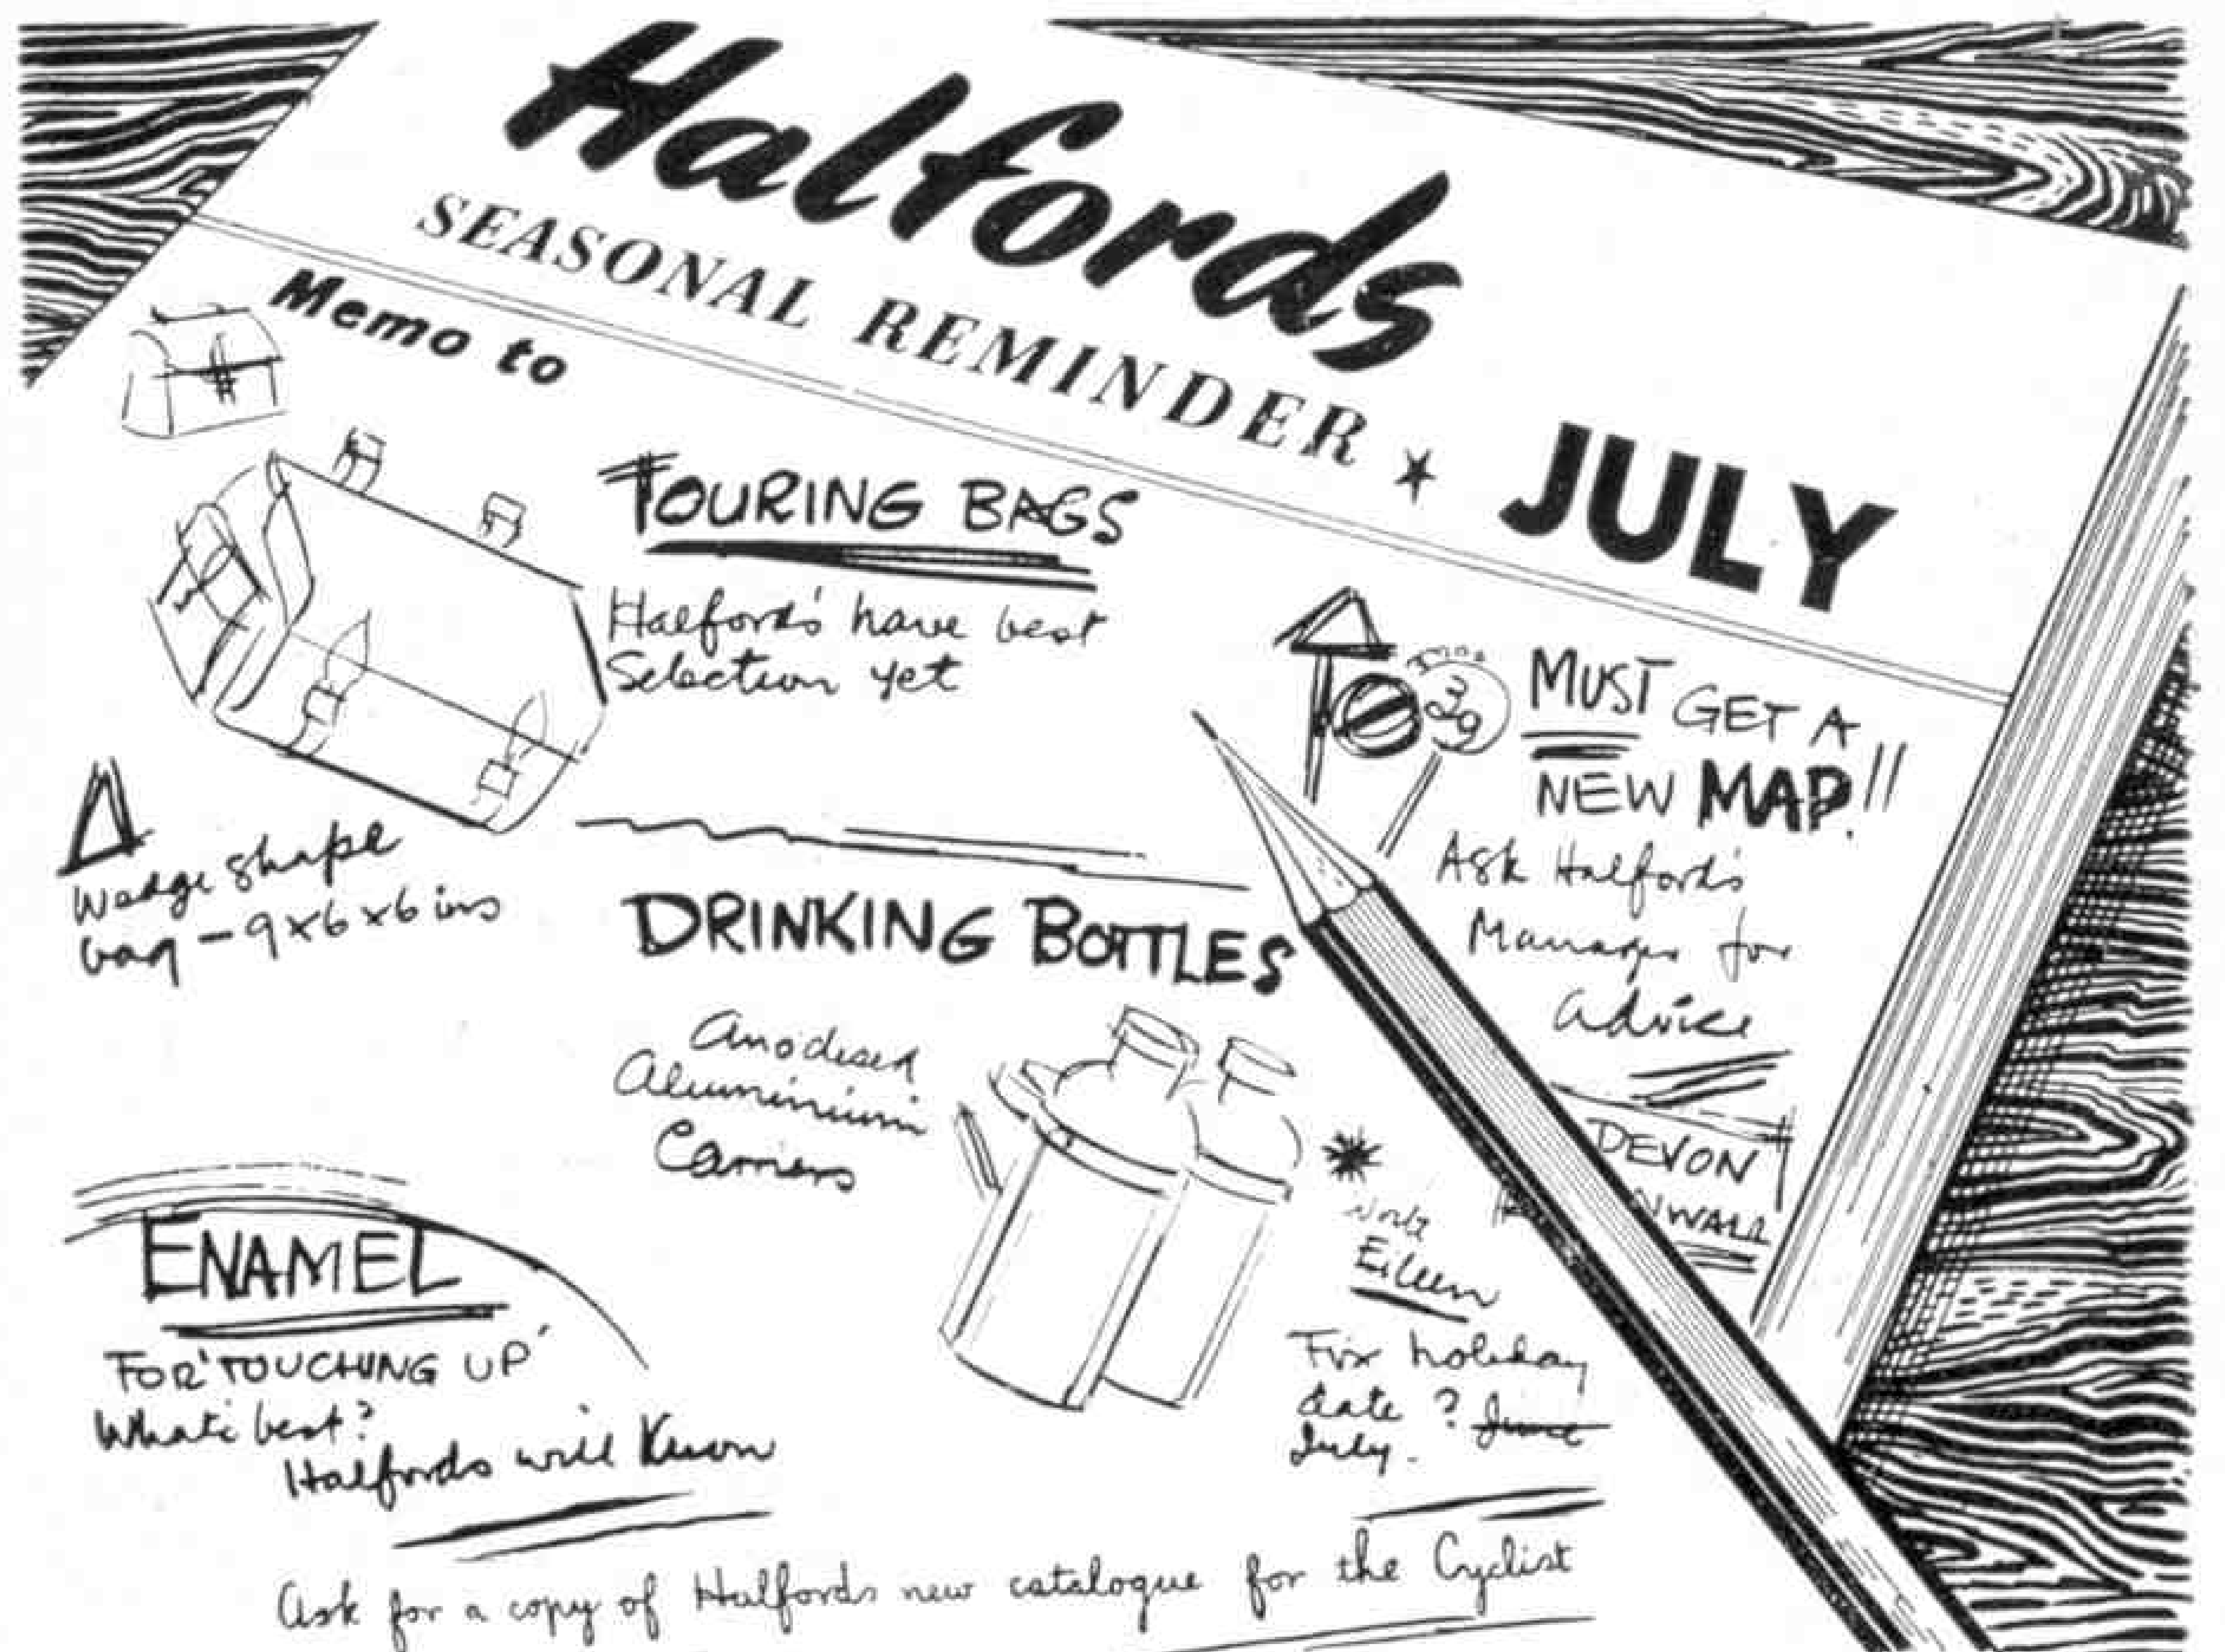 Halfords
SEASONAL REMINDER ★ JULY
Memo to
TOURING BAGS
Halford's have best
Selection yet
Wedge shape
bag - 9x6x6 ins
30
MUST GET A
NEW MAP!!
Ask Halford's
Manager for
advice
DEVON
NWALL
DRINKING BOTTLES
Anodised
Aluminium
Carriers
Eileen
Fix holiday
date ? June
July.
ENAMEL
FOR 'TOUCHING UP'
What's best?
Halfords will know
Ask for a copy of Halfords new catalogue for the Cyclist